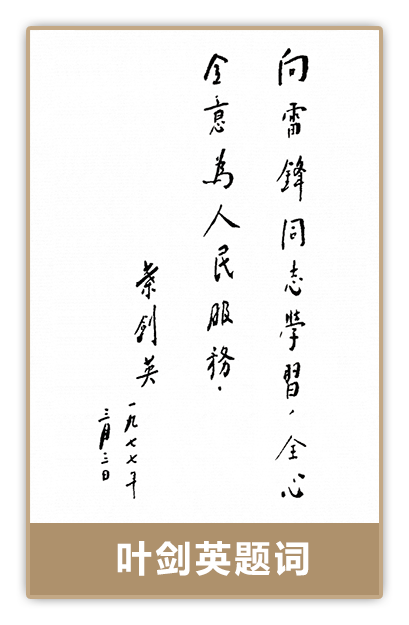 向雷鋒同志學習，全心
全意為人民服務．
葉劍英
一九七七年
三月三日
叶剑英题词